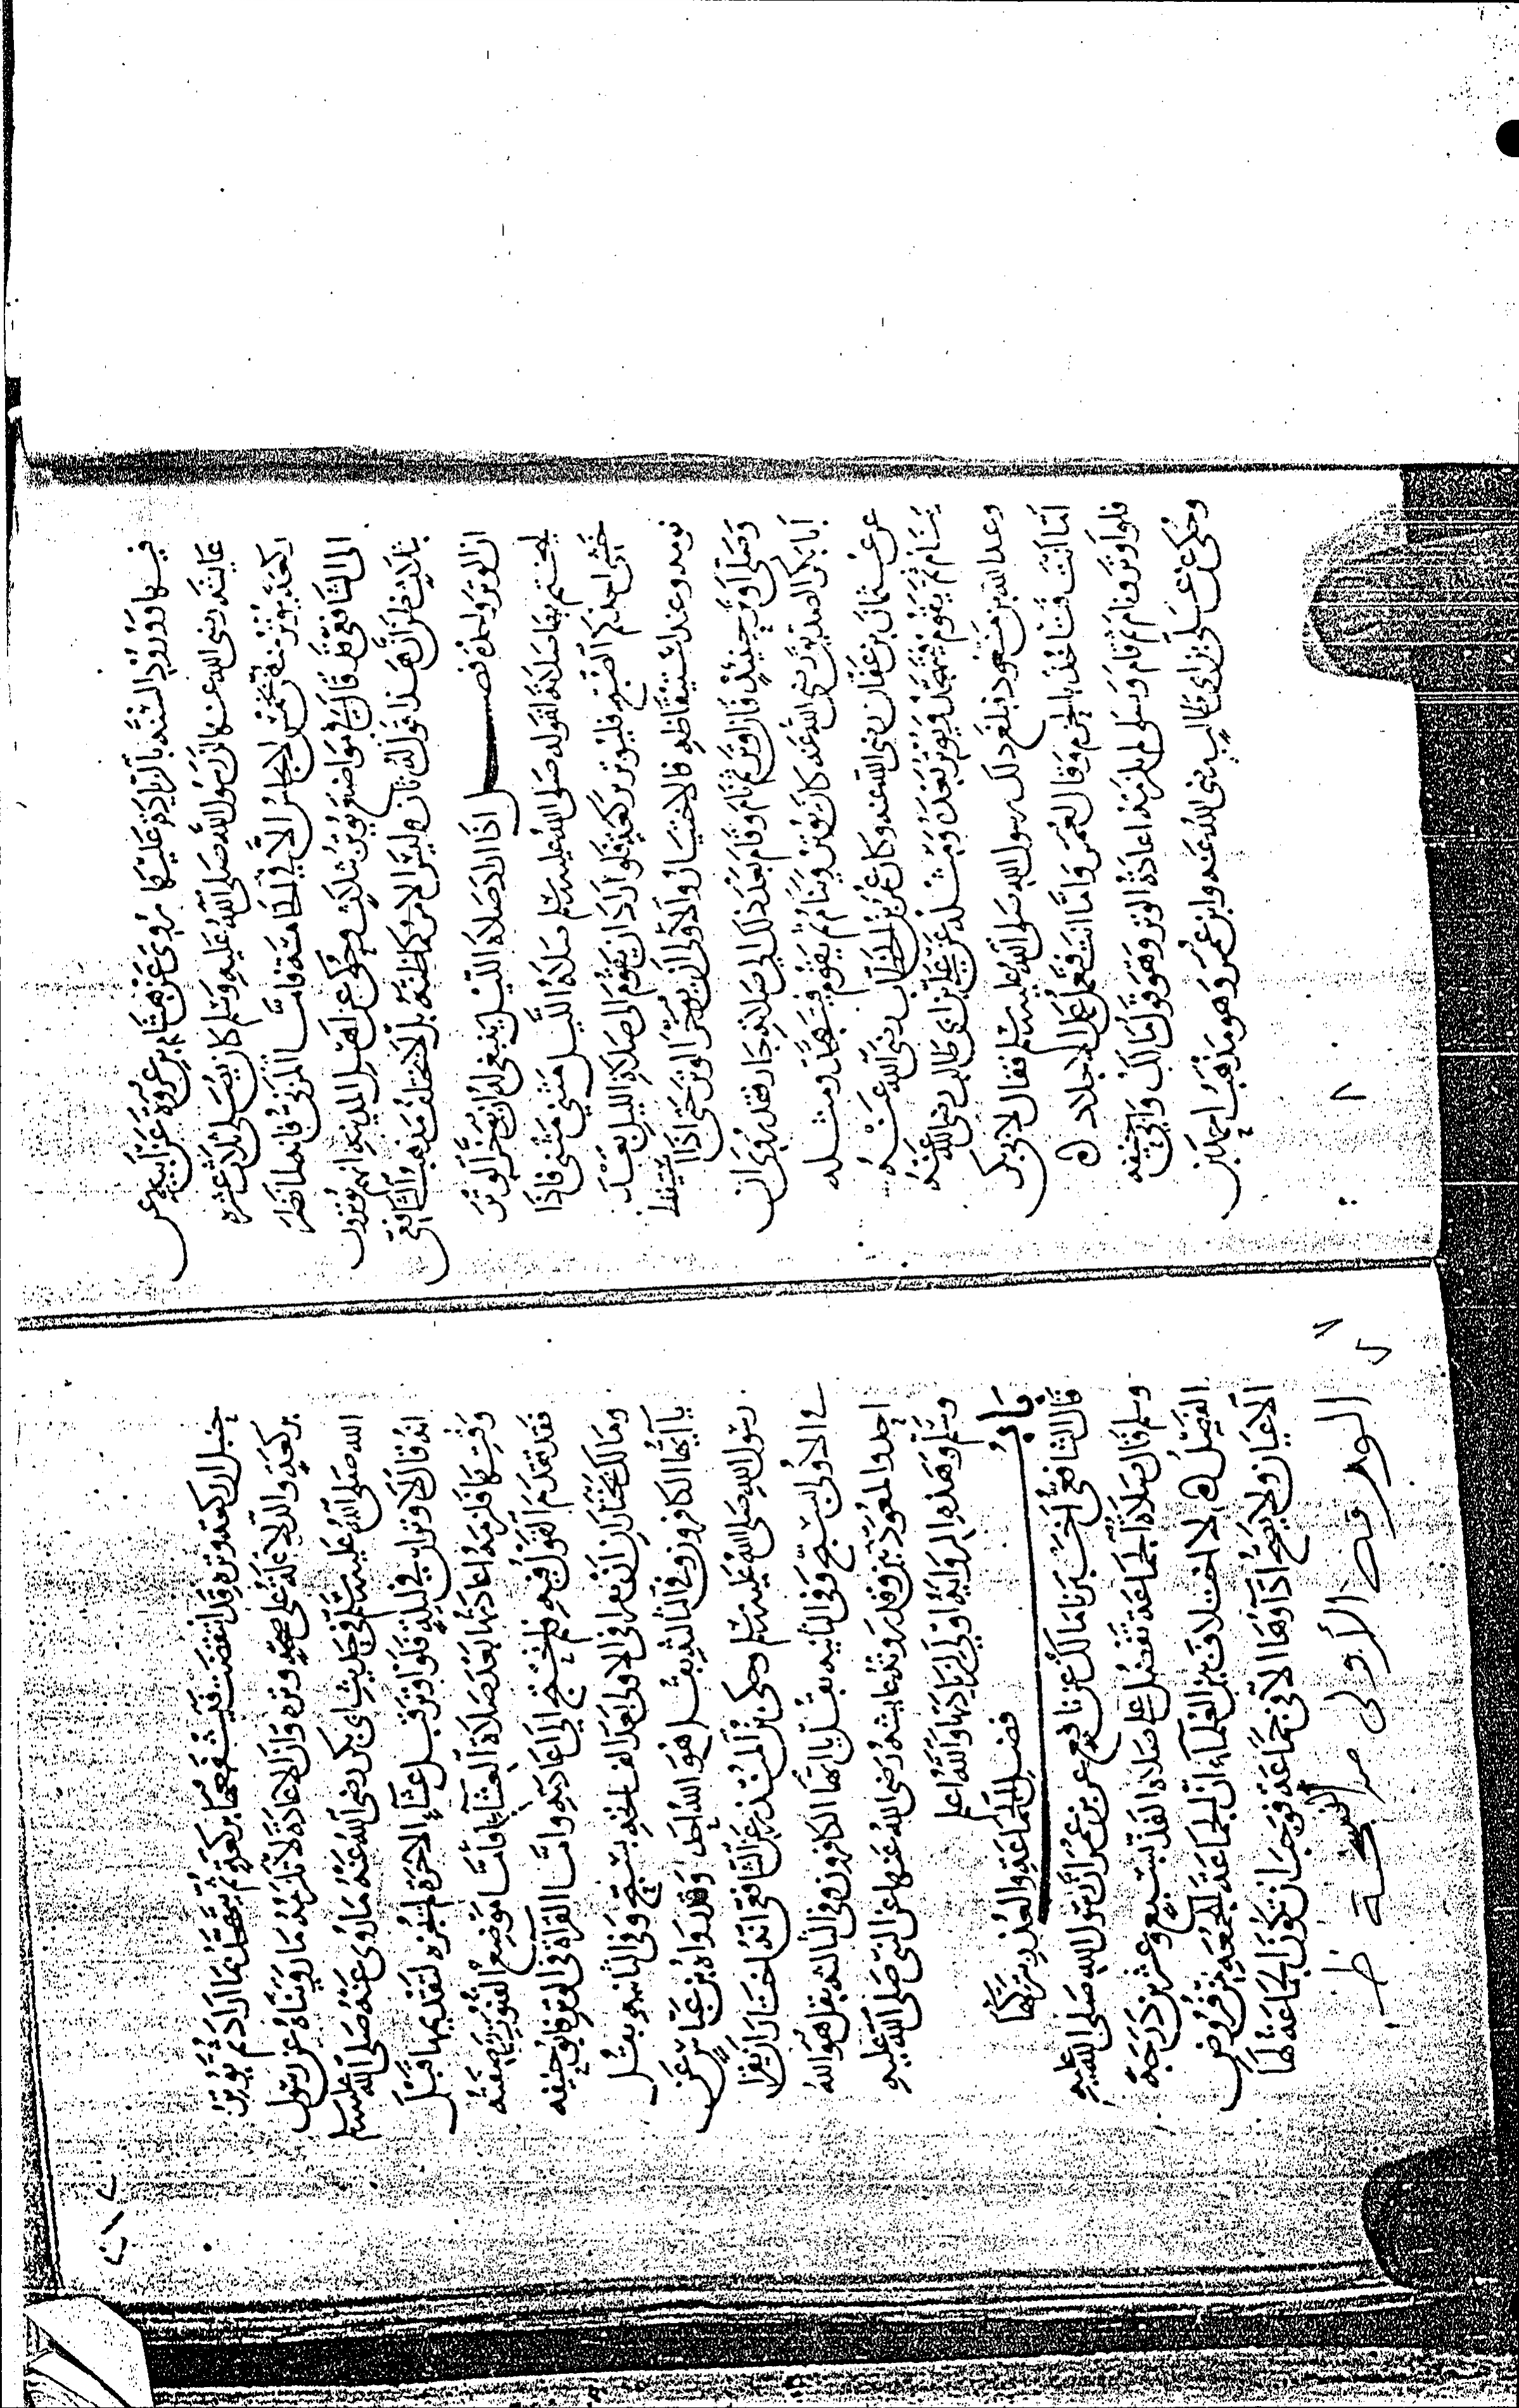 فيها ورود السنة بالزيادة عليها روى عن هشام بن عروة عن ابيه عن
عايشة رضي الله عنها ان رسول الله صلى الله عليه وسلم كان يصلي ثلاث عشرة
ركعة يوتر منها بخمس لا يجلس الا في الخامسة فاما المزني فانه لما نظر
الى الشافعي قد قال في مواضع يوتر بثلاث وحكى عن اهل المدينة انهم يوترون
بثلاث ظن ان هذا قول له ثان وليس الامر كما ظنه بل لا يختلف مذهب الشافعي
ان الوتر واحدة فصل اذا اراد صلاة الليل ينبغي له ان يؤخر الوتر
ليختم بها صلاته لقوله صلى الله عليه وسلم صلاة الليل مثنى مثنى فاذا
خشي احدكم الصبح فليوتر بركعة فلو اراد ان يقوم الى صلاة الليل بعد
نومه وعند استيقاظه فالاختيار والاولى ان يؤخر الوتر حتى اذا استيقظ
وصلى اوتر حينئذ فان اوتر ثم نام وقام بعد ذلك الى صلاته جاز فقد روى ان
ابا بكر الصديق رضي الله عنه كان يوتر وينام ثم يقوم فيتهجد ومثله
عن عثمان بن عفان رضي الله عنه وكان عمر بن الخطاب رضي الله عنه
ينام ثم يقوم فيتهجد ويوتر بعده ومثله عن علي بن ابي طالب رضي الله عنه
وعبد الله بن مسعود فبلغ ذلك رسول الله صلى الله عليه وسلم فقال لابي بكر
اما انت فتاخذ بالحزم وقال لعمر واما انت فتعمل عمل الاجلاد ٥
فلو اوتر ونام ثم قام وصلى لم يلزمه اعادة الوتر وهو قول مالك وابي حنيفة
وحكى عن علي بن ابي طالب رضي الله عنه وابن عمر وهو مذهب احمد بن
٨
حنبل ان ركعة وتره قد انتقضت فيشفعها بركعة ثم يتهجد بما اراد ثم يوتر
بركعة والدلالة على صحة وتره وان الاعادة لا تلزمه ما رويناه عن رسول
الله صلى الله عليه وسلم في حديث ابي بكر رضي الله عنه ما روى عنه صلى الله عليه وسلم
انه قال لا وتران في ليلة فلو اوتر قبل عشاء الاخرة لم يجزه لتقديمها قبل
وقتها فلزمه اعادتها بعد صلاة العشاء فاما موضع القنوت وصفته
فقد تقدم القول فيه فلم نحتج الى اعادته واما القراة في الوتر فابو حنيفة
ومالك يختاران ان يقرا في الاولى بعد الفاتحة بسبح وفي الثانية بقل
يا ايها الكافرون وفي الثالثة بقل هو الله احد وقد رواه بن عباس عن
رسول الله صلى الله عليه وسلم وحكى بن المنذر عن الشافعي انه اختار ان يقرا
في الاولى بسبح وفي الثانية بقل يا ايها الكافرون وفي الثالثة بقل هو الله
احد والمعوذتين وقد روته عايشة رضي الله عنها عن النبي صلى الله عليه
وسلم وهذه الرواية اولى لزيادتها والله اعلم
باب فضل الجماعة والعذر بتركها
قال الشافعي اخبرنا مالك عن نافع عن بن عمر ان رسول الله صلى الله عليه
وسلم قال صلاة الجماعة تفضل على صلاة الفذ بسبع وعشرين درجة
الفصل ٥ لا اختلاف بين العلماء ان الجماعة للجمعة من فروض
الاعيان ولا يصح اداؤها الا في جماعة فوجب ان تكون الجماعة لها
الورقة الأولى من النسخة ظ